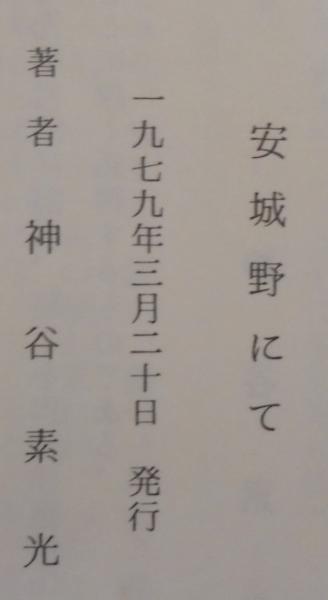 安城野にて
一九七九年三月二十日　発行
著者　神谷素光